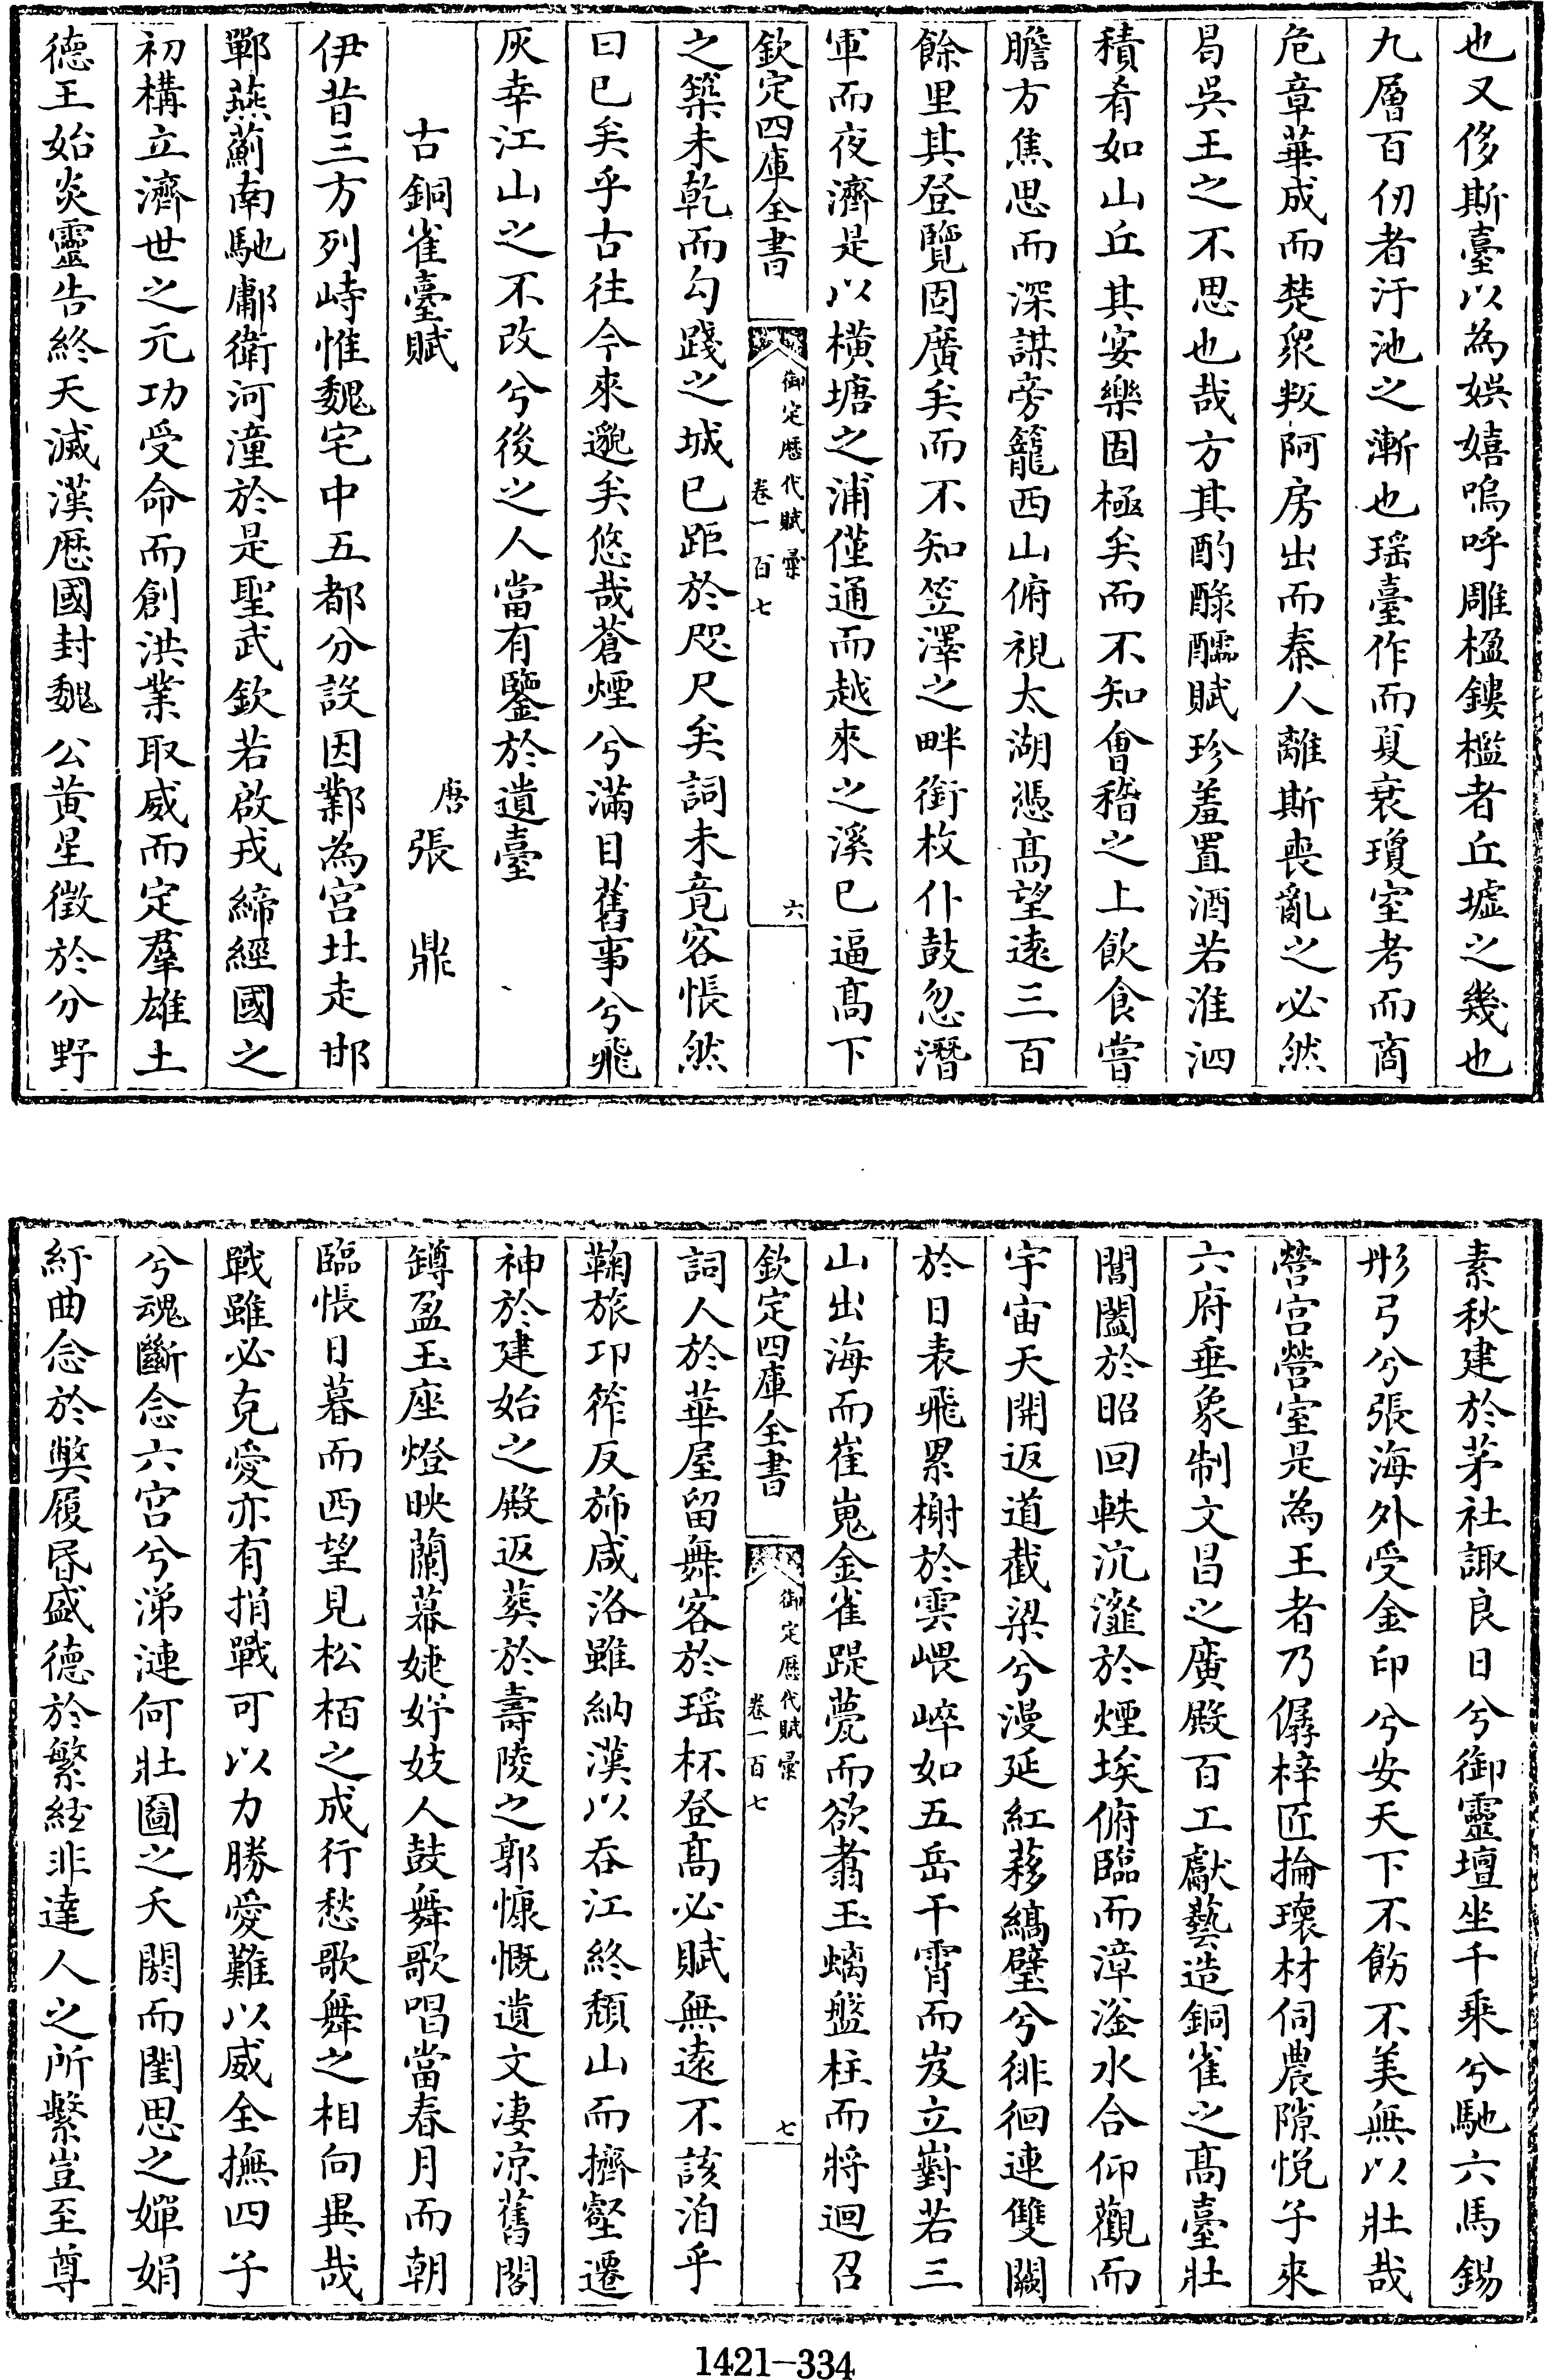 也又侈斯臺以為娯嬉嗚呼雕楹鏤檻者丘墟之幾也
九層百仞者汙池之漸也瑶臺作而夏衰瓊室考而商
危章華成而楚衆叛阿房出而秦人離斯喪亂之必然
曷吳王之不思也哉方其酌醁醽賦珍羞置酒若淮泗
積肴如山丘其宴樂固極矣而不知會稽之上飲食嘗
膽方焦思而深謀旁籠西山俯視太湖憑髙望遠三百
餘里其登覽固廣矣而不知笠澤之畔銜枚仆鼓忽潛
軍而夜濟是以横塘之浦僅通而越來之溪已逼髙下
欽定四庫全書 御定歴代賦彙 卷一百七 六
之築未乾而勾踐之城已距於咫尺矣詞未竟客悵然
曰已矣乎古往今來邈矣悠哉蒼煙兮滿目舊事兮飛
灰幸江山之不改兮後之人當有鑒於遺臺
古銅雀臺賦 唐張鼎
伊昔三方列峙惟魏宅中五都分設因鄴為宫北走邯
鄲燕薊南馳鄘衛河潼於是聖武欽若啟戎締經國之
初構立濟世之元功受命而創洪業取威而定羣雄土
德王始炎靈告終天滅漢厯國封魏公黄星徵於分野
素秋建於茅社諏良日兮御靈壇坐千乘兮馳六馬錫
彤弓兮張海外受金印兮安天下不飭不美無以壯哉
營宫營室是為王者乃僝梓匠掄瓌材伺農隙悦子來
六府垂象制文昌之廣殿百工獻藝造銅雀之髙臺壯
閶闔於昭回軼沆瀣於煙埃俯臨而漳滏水合仰觀而
宇宙天開返道截梁兮漫延紅蓼縞壁兮徘徊連雙闕
於日表飛累榭於雲㟪崪如五岳干霄而岌立對若三
山出海而崔嵬金雀踶甍而欲翥玉螭盤柱而將迴召
欽定四庫全書 御定歴代賦彙 卷一百七 七
詞人於華屋留舞客於瑶杯登髙必賦無遠不該洎乎
鞠旅卭筰反斾咸洛雖納漢以吞江終頽山而擠壑遷
神於建始之殿返葬於壽陵之郭慷慨遺文淒凉舊閣
罇盈玉座燈映蘭幕婕妤妓人鼓舞歌唱當春月而朝
臨悵日暮而西望見松栢之成行愁歌舞之相向異哉
戰雖必克愛亦有捐戰可以力勝愛難以威全撫四子
兮魂斷念六宫兮涕漣何壯圖之夭閼而閨思之嬋娟
紆曲念於獘履昏盛德於繁絃非達人之所繫豈至尊
1421-334